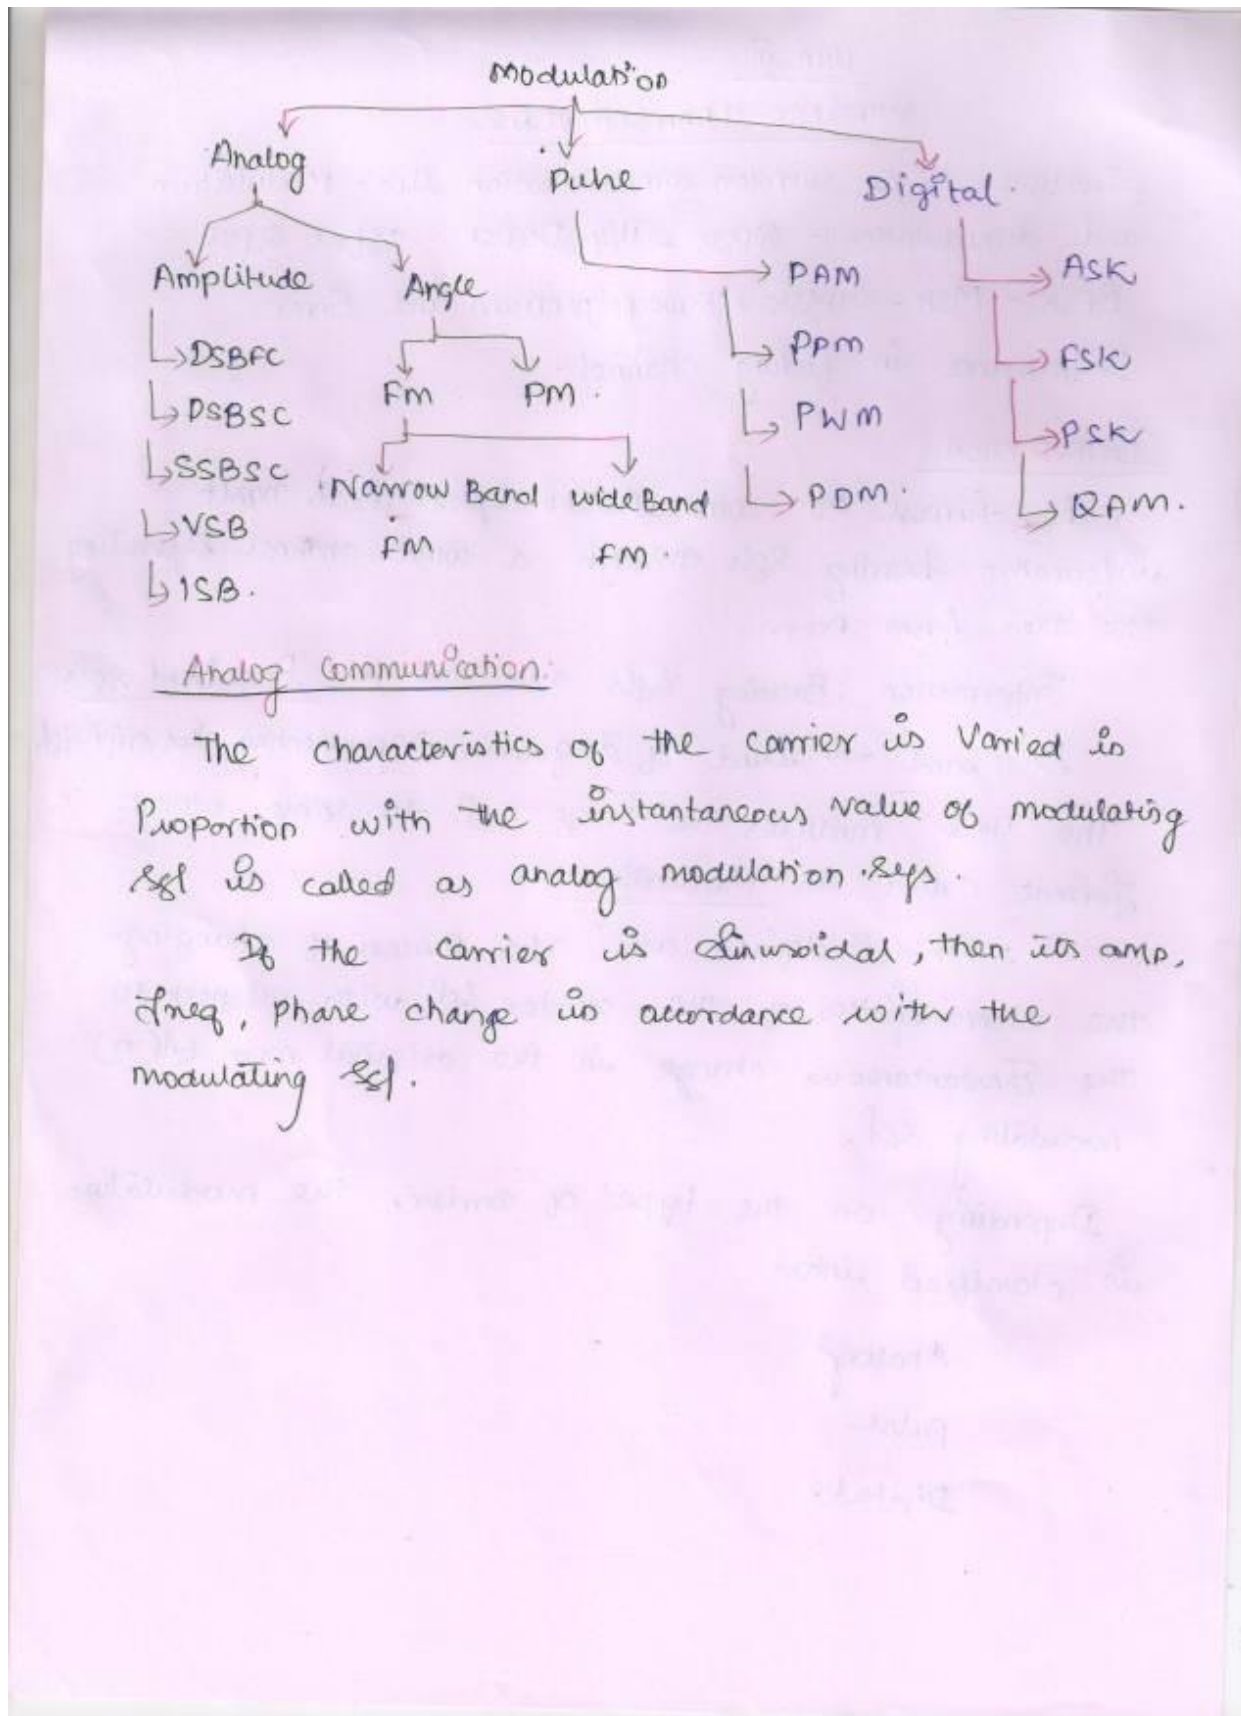 Modulation
Analog Pulse Digital.
Amplitude Angle PAM ASK
DSBFC FM PM. PPM FSK
DSBSC PWM PSK
SSBSC Narrow Band FM Wide Band FM. PDM. QAM.
VSB
ISB.
Analog Communication:
The characteristics of the carrier is varied in
Proportion with the instantaneous value of modulating
sgl is called as analog modulation sys.
If the carrier is sinusoidal, then its amp,
freq, phase change in accordance with the
modulating sgl.